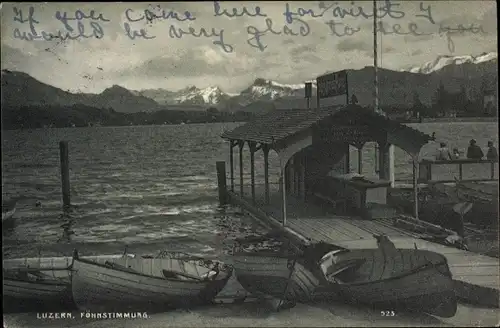 If you come here for visit y
would be very glad to see you
LUZERN, FÖHNSTIMMUNG.
923